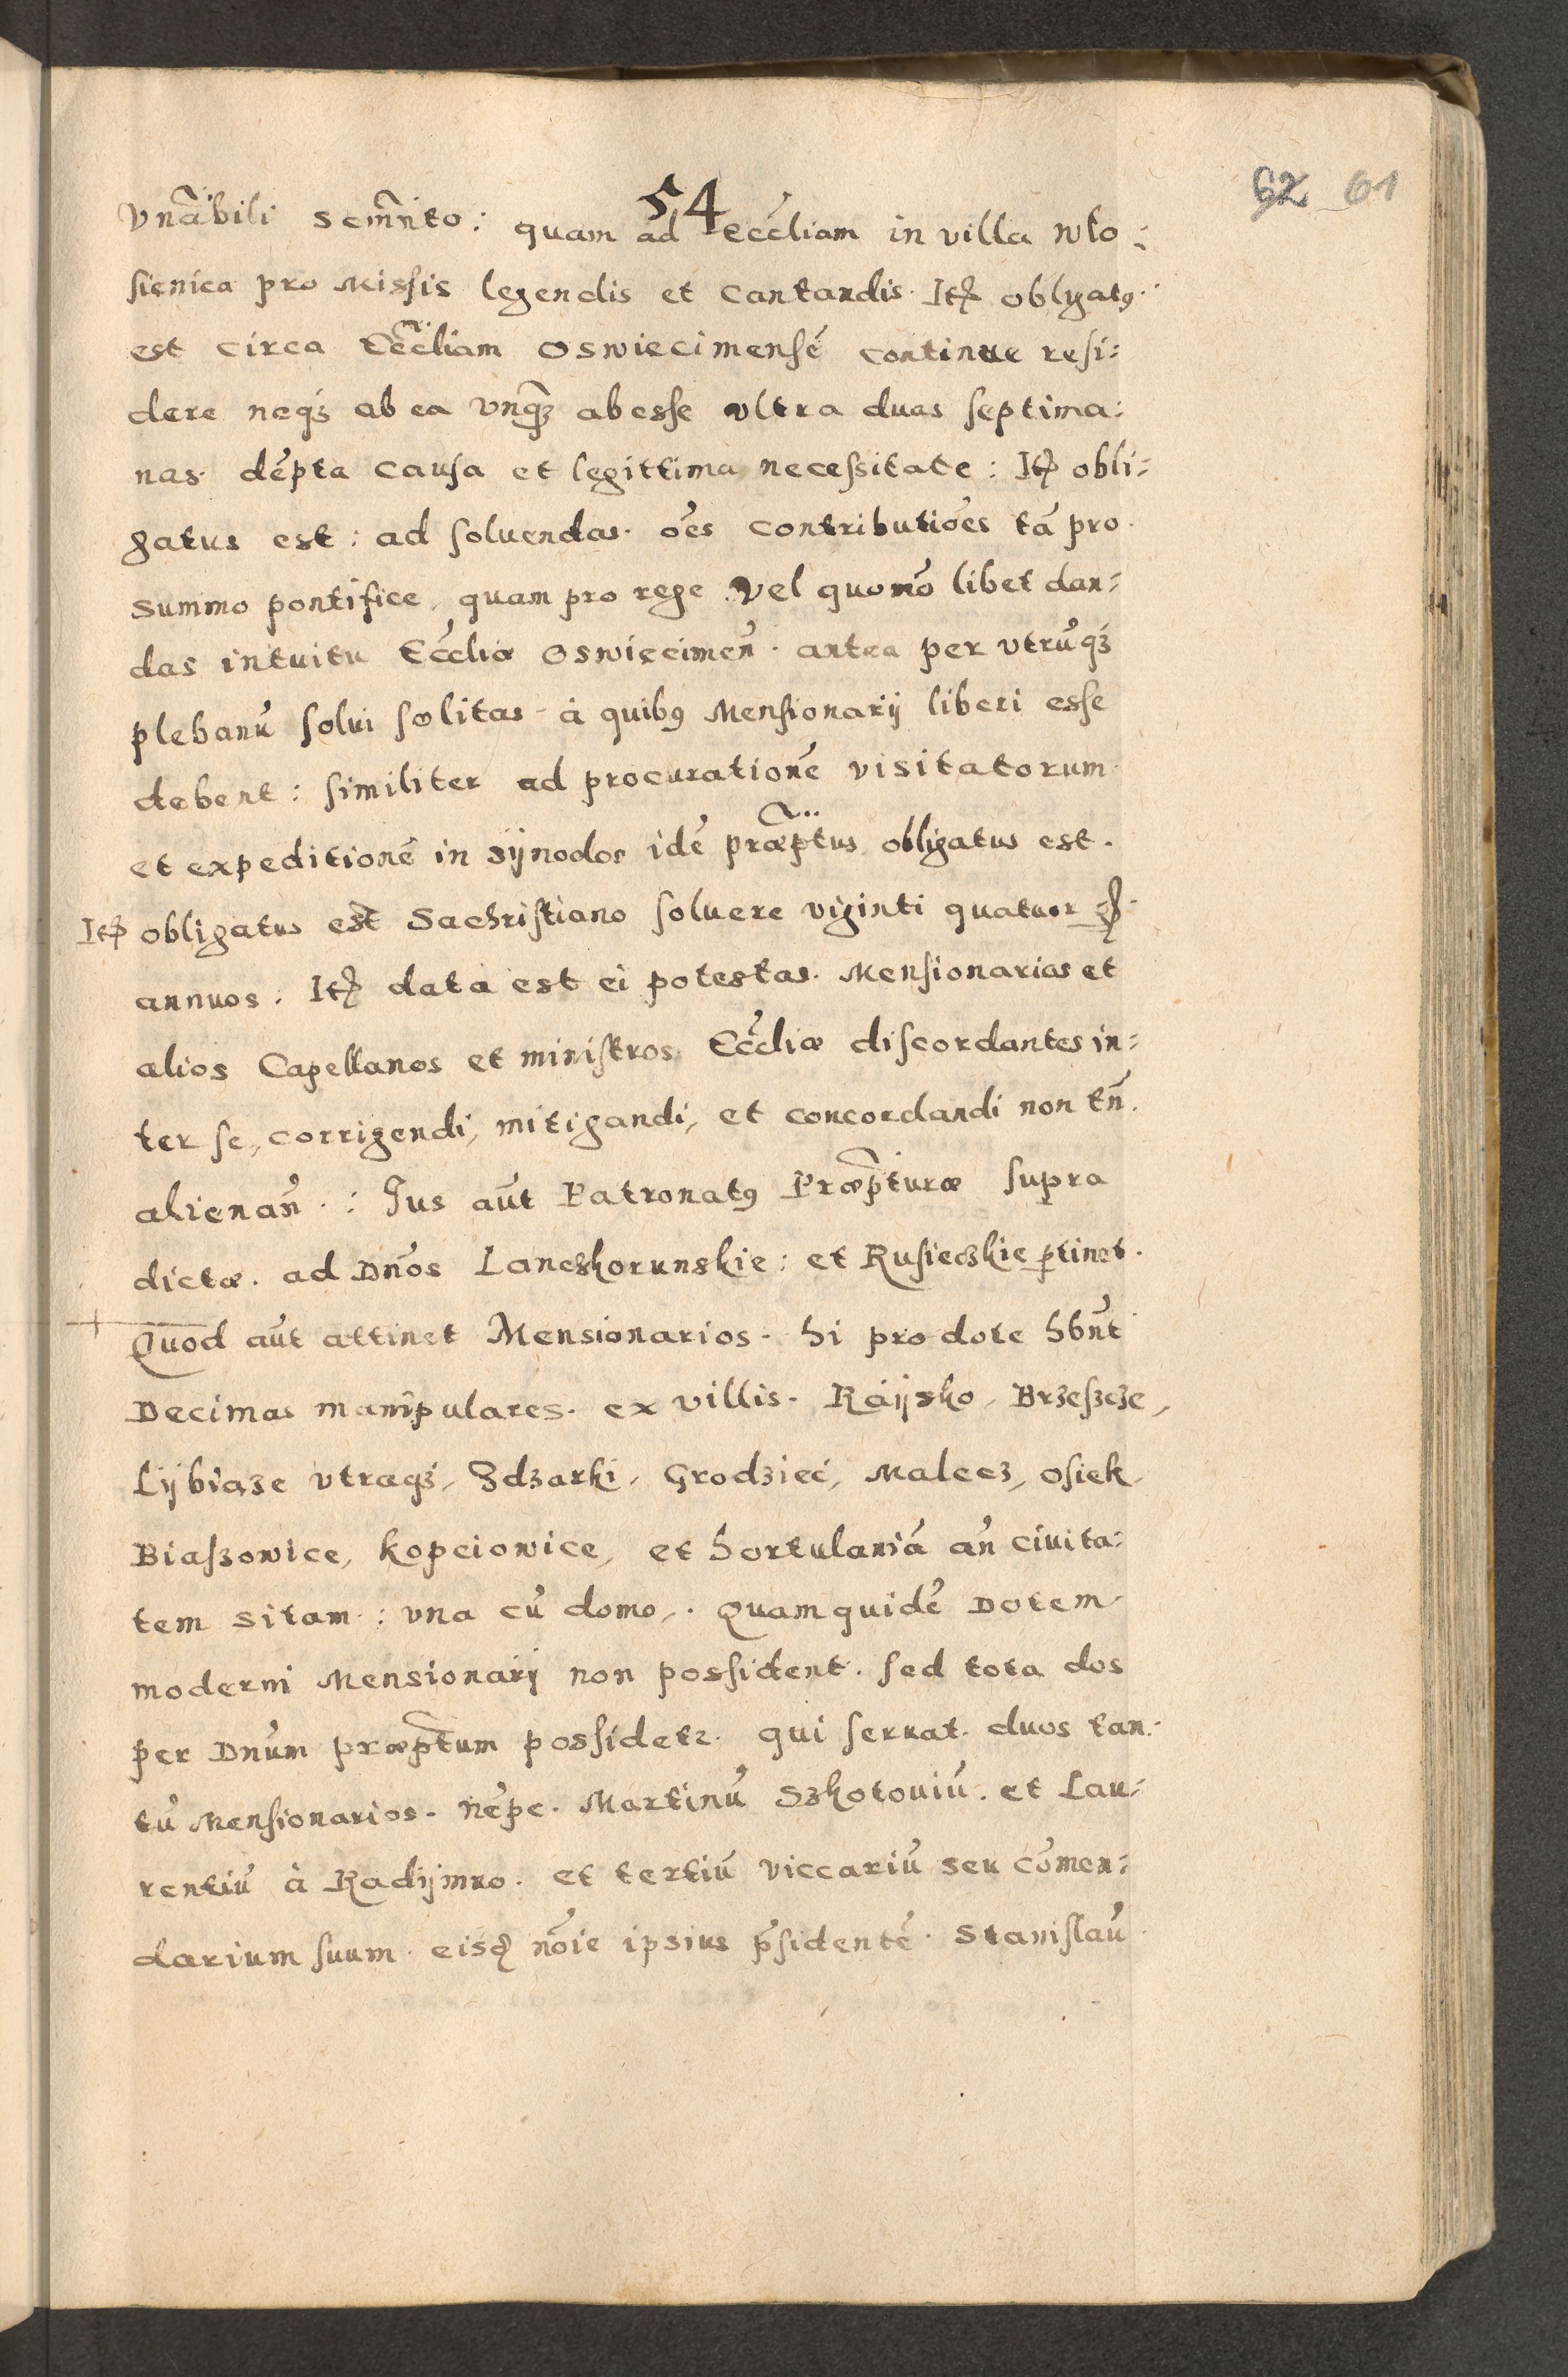 54
62 61
Vnãbili Scm̃nto: quam ad Eccĺiam in villa Wło⹀
sienica pro Missis legendis et cantandis. Itꝫ obligatꝰ
est circa Eccĺiam Oswiecimensẽ continue resi⹀
dere neqꝫ ab ea vnqꝫ abesse vltra duas septima⹀
nas. dẽpta causa et legittima necessitate: Itꝫ obli⹀
gatus est: ad soluendas. oẽs contributiões tã pro
summo pontifice, quam pro rege vel quomõ libet dan⹀
das intuitu Eccĺiæ Oswiecimen̄. antea per vtrũqꝫ
plebanũ solui solitas à quibꝰ Mensionarij liberi esse
debent: similiter ad procurationẽ visitatorum
et expeditionẽ in sÿnodos idẽ præp̃tus obligatus est.
Itꝫ obligatus est Sachristiano soluere viginti quatuor
annuos. Itꝫ data est ei potestas. Mensionarios et
alios Capellanos et ministros Eccĺiæ discordantes in⹀
ter se, corrigendi, mitigandi, et concordandi non tñ.
alienan̄.: Jus aũt Patronatꝰ Præp̃turæ supra
dictæ. ad Dños Lanczkorunskie: et Rusieczkie ꝑtinet.
Quod aũt attinet Mensionarios. hi pro dote hñt
Decimas manipulares. ex villis. Raÿsko, Brzeszcze,
Lÿbiąze vtraqꝫ, Zdzarki, Grodziec, Malecz, Osiek
Biaszowice, Kopciowice, et hortulaniã añ ciuita⹀
tem sitam: vna cũ domo,. Quam quidẽ Dotem
moderni Mensionarij non possident. sed tota dos
per Dñum præp̃tum possidetꝛ. qui seruat. duos tan
tũ Mensionarios. nẽpe. Martinũ Szkotouiũ. et Lau⹀
rentiũ à Radÿmno. et tertiũ viccariũ seu cõmen⹀
darium suum. eisdꝫ nõie ipsius p̃sidentẽ. Stanislaũ